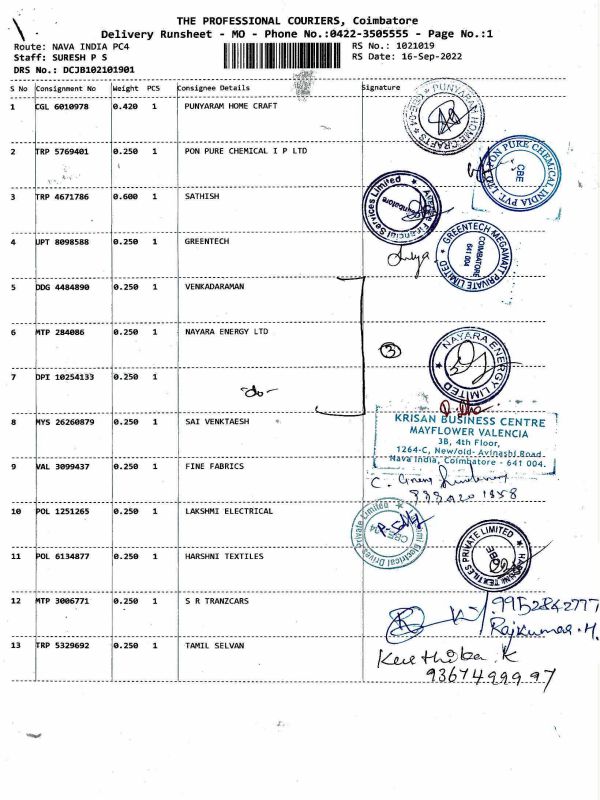 THE PROFESSIONAL COURIERS, Coimbatore
Delivery Runsheet - MO - Phone No.:0422-3505555 - Page No.:1
Route: NAVA INDIA PC4
Staff: SURESH P S
DRS No.: DCJB102101901
RS No.: 1021019
RS Date: 16-Sep-2022
S No Consignment No Weight PCS Consignee Details Signature
1 CGL 6010978 0.420 1 PUNYARAM HOME CRAFT
PUNYARAM HOME CRAFTS CBE-04
2 TRP 5769401 0.250 1 PON PURE CHEMICAL I P LTD
PON PURE CHEMICAL INDIA PVT. LTD.
CBE
3 TRP 4671786 0.600 1 SATHISH
Financial Services Limited
Coimbatore
4 UPT 8098588 0.250 1 GREENTECH
GREENTECH MEGAWATT PRIVATE LIMITED
COIMBATORE
641 004
5 DDG 4484890 0.250 1 VENKADARAMAN
6 MTP 284086 0.250 1 NAYARA ENERGY LTD
3
NAYARA ENERGY LIMITED
7 DPI 10254133 0.250 1
-do-
8 MYS 26260879 0.250 1 SAI VENKTAESH
KRISAN BUSINESS CENTRE
MAYFLOWER VALENCIA
3B, 4th Floor,
1264-C, New/old- Avinashi Road
Nava India, Coimbatore - 641 004.
9 VAL 3099437 0.250 1 FINE FABRICS
10 POL 1251265 0.250 1 LAKSHMI ELECTRICAL
Electrical Drives Private Limited
CBE-04
11 POL 6134877 0.250 1 HARSHNI TEXTILES
HARSHNI TEXTILES PRIVATE LIMITED
CBE
12 MTP 3006771 0.250 1 S R TRANZCARS
9952842777
Rajkumar.M.
13 TRP 5329692 0.250 1 TAMIL SELVAN
Keerthika K
9367499997